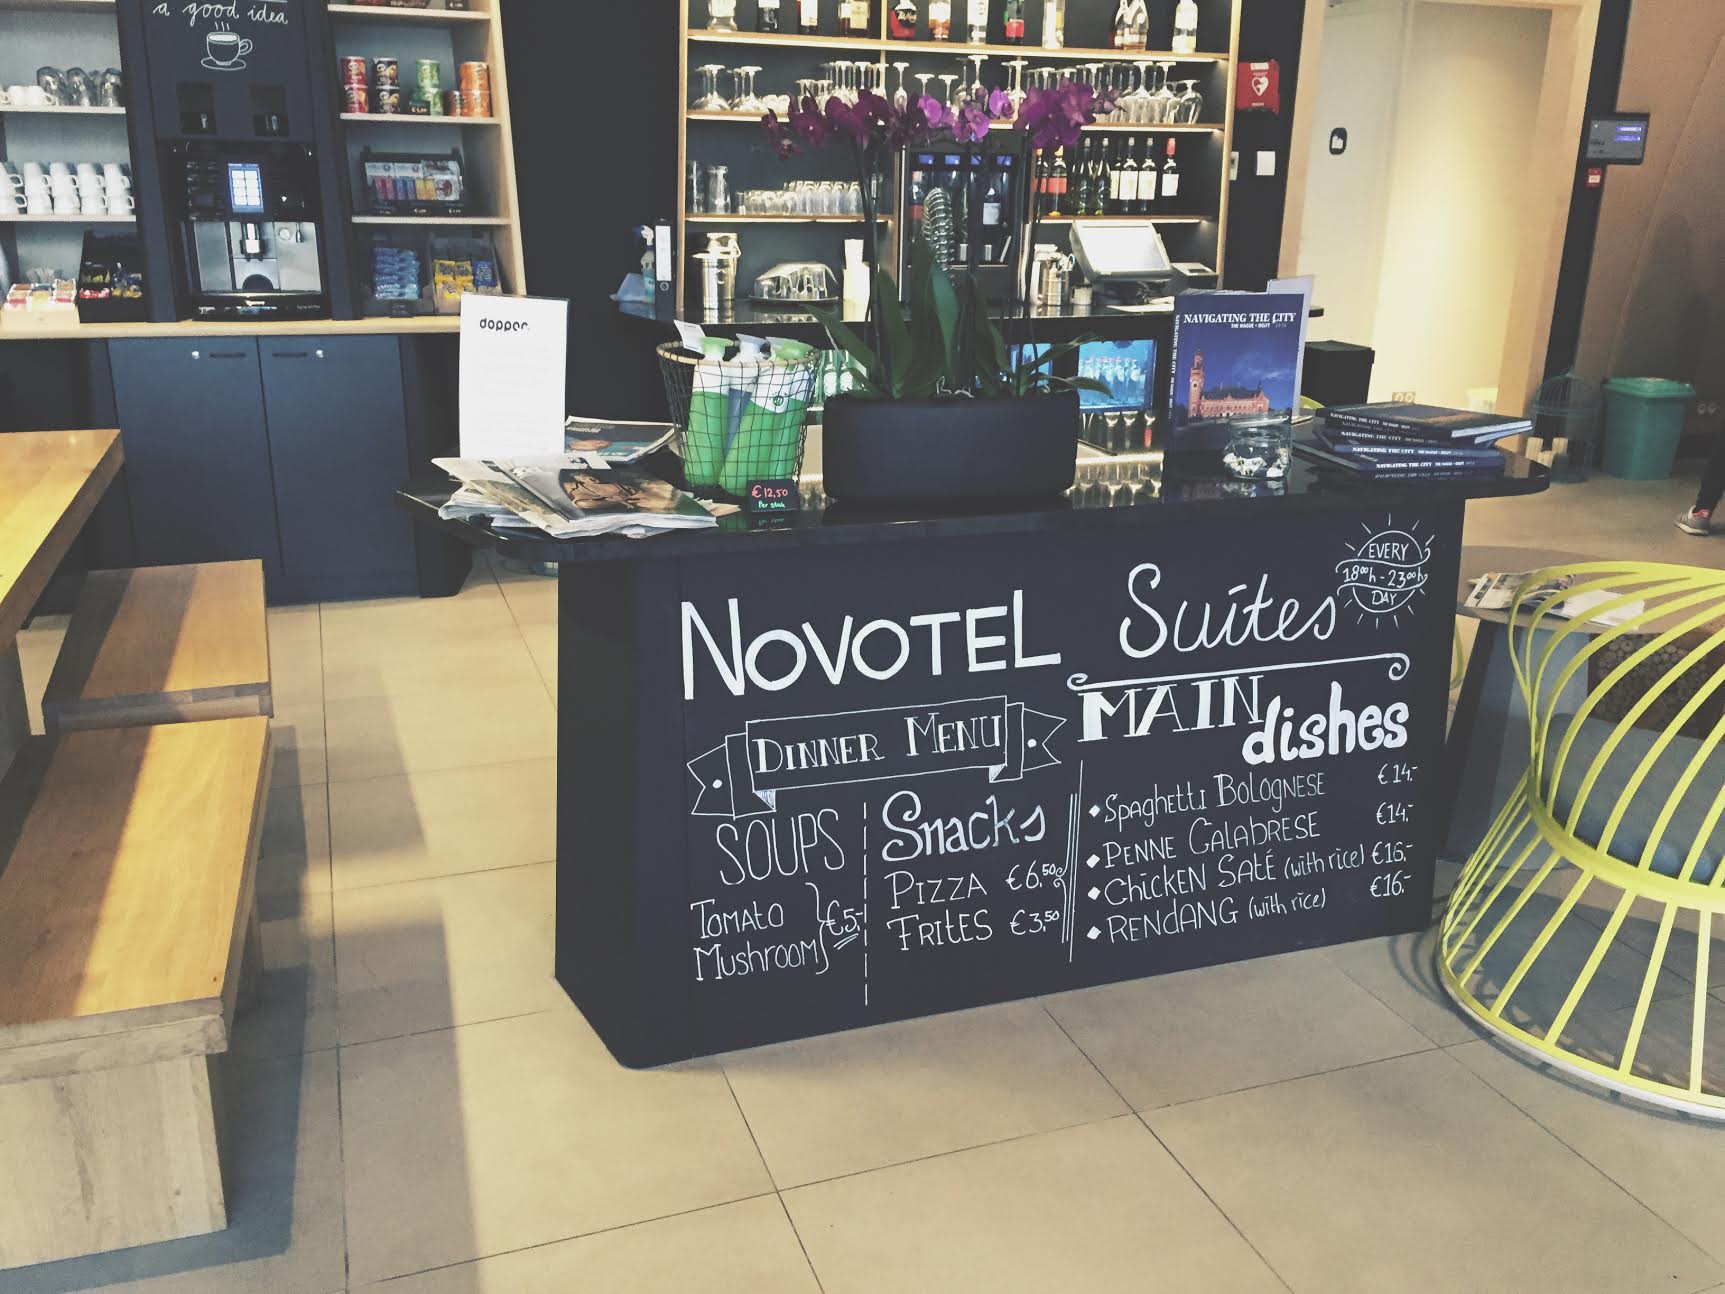 a good idea
dopper.
NAVIGATING THE CITY
THE HAGUE + DELFT
NAVIGATING THE CITY
NAVIGATING THE CITY
NAVIGATING THE CITY
NAVIGATING THE CITY
€12,50
Per stuk
EVERY
18ººh - 23ººh
DAY
NOVOTEL Suites
DINNER MENU
SOUPS
TOMATO
MUSHROOM
€5,-
Snacks
PIZZA €6,50
FRITES €3,50
MAIN
dishes
SPAGHETTI BOLOGNESE €14,-
PENNE CALABRESE €14,-
CHICKEN SATÉ (with rice) €16,-
RENDANG (with rice) €16,-